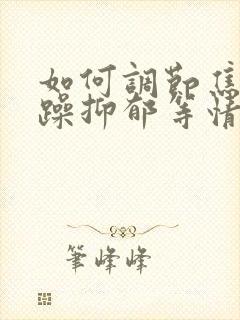 如何調節焦
躁抑郁等情
筆峰峰